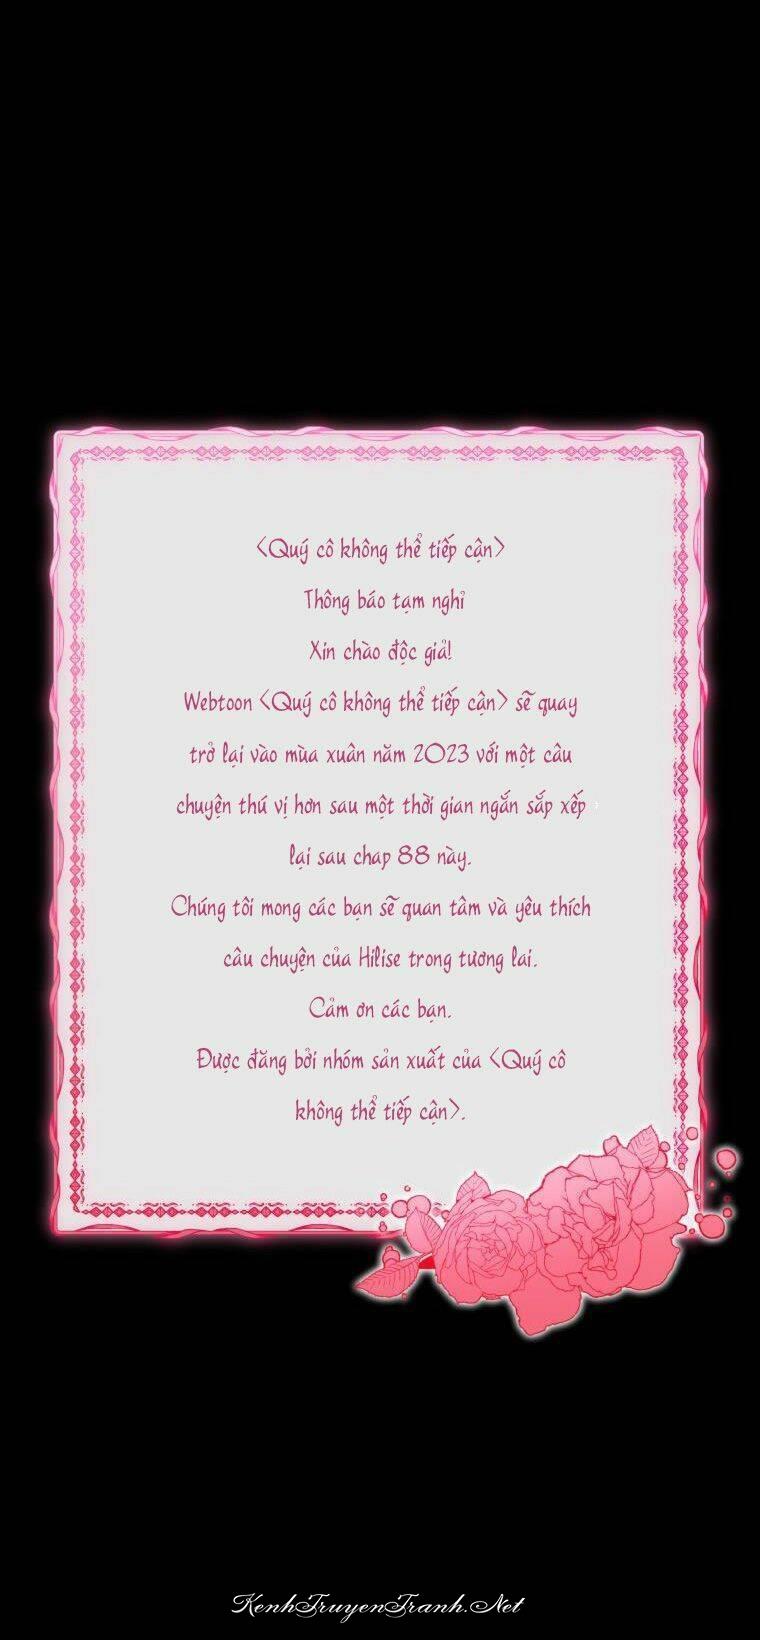 <Quý cô không thể tiếp cận>
Thông báo tạm nghỉ
Xin chào độc giả!
Webtoon <Quý cô không thể tiếp cận> sẽ quay
trở lại vào mùa xuân năm 2023 với một câu
chuyện thú vị hơn sau một thời gian ngắn sắp xếp
lại sau chap 88 này.
Chúng tôi mong các bạn sẽ quan tâm và yêu thích
câu chuyện của Hilise trong tương lai.
Cảm ơn các bạn.
Được đăng bởi nhóm sản xuất của <Quý cô
không thể tiếp cận>.
KenhTruyenTranh.Net